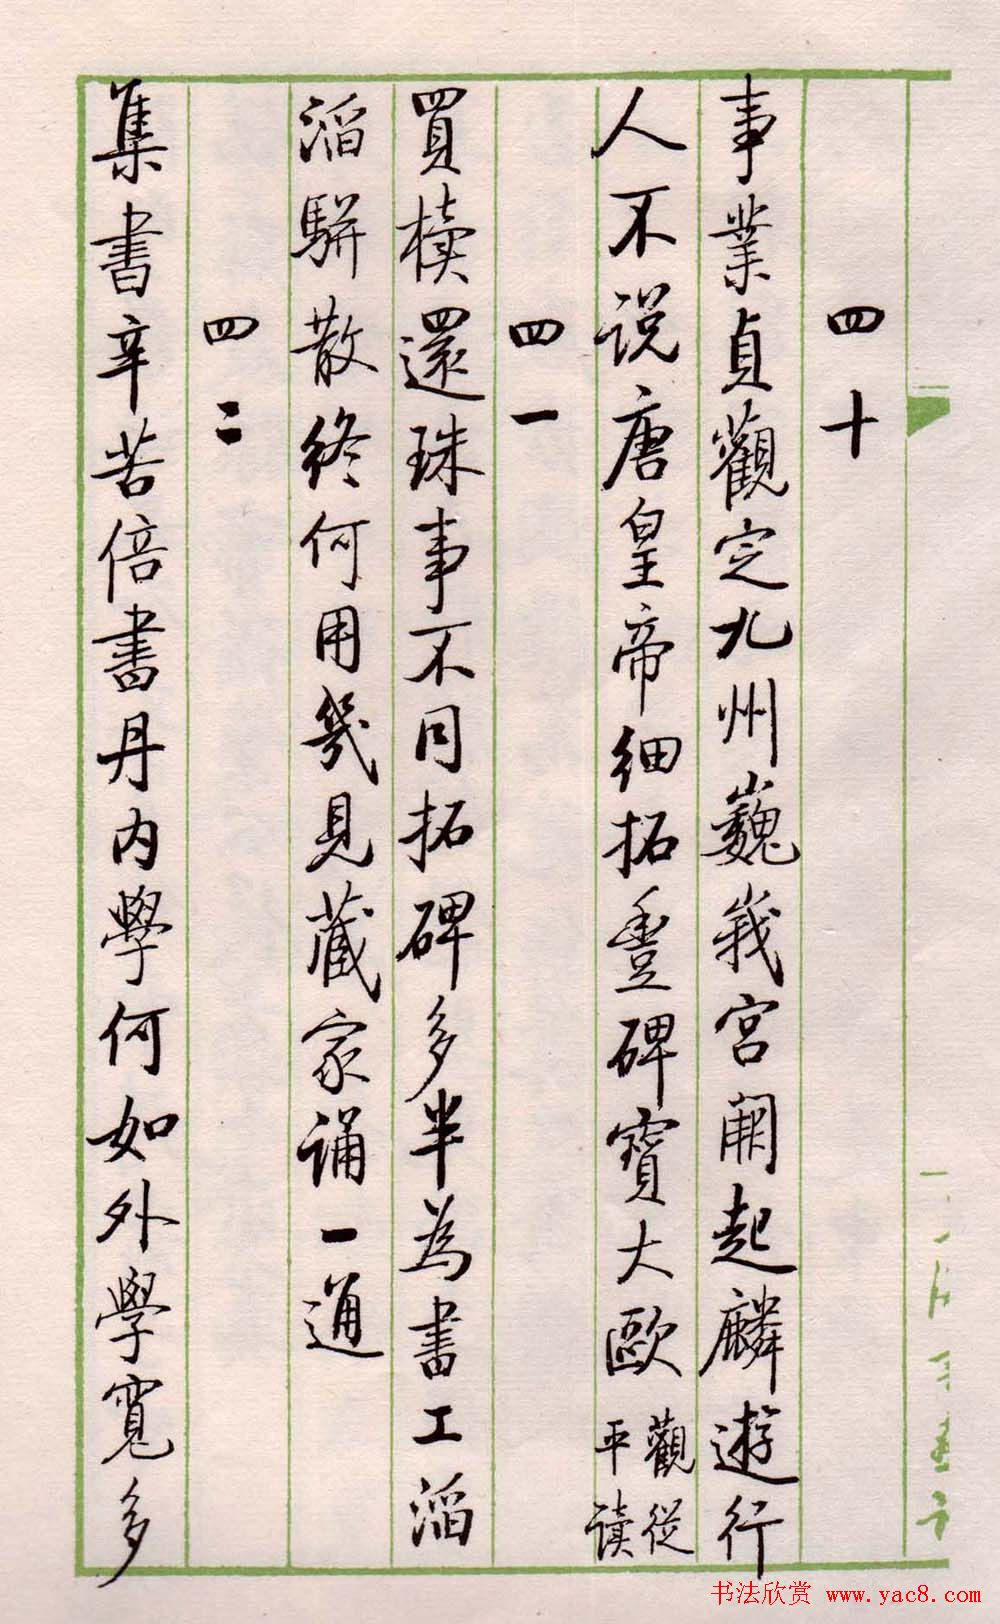 四十
事業貞觀定九州巍峩宮闕起麟遊行
人不说唐皇帝細拓豊碑寶大歐觀從平读
四一
買櫝還珠事不同拓碑多半為書工滔
滔駢散終何用幾見藏家誦一通
四二
集書辛苦倍書丹内學何如外學寬多
书法欣赏 www.yac8.com